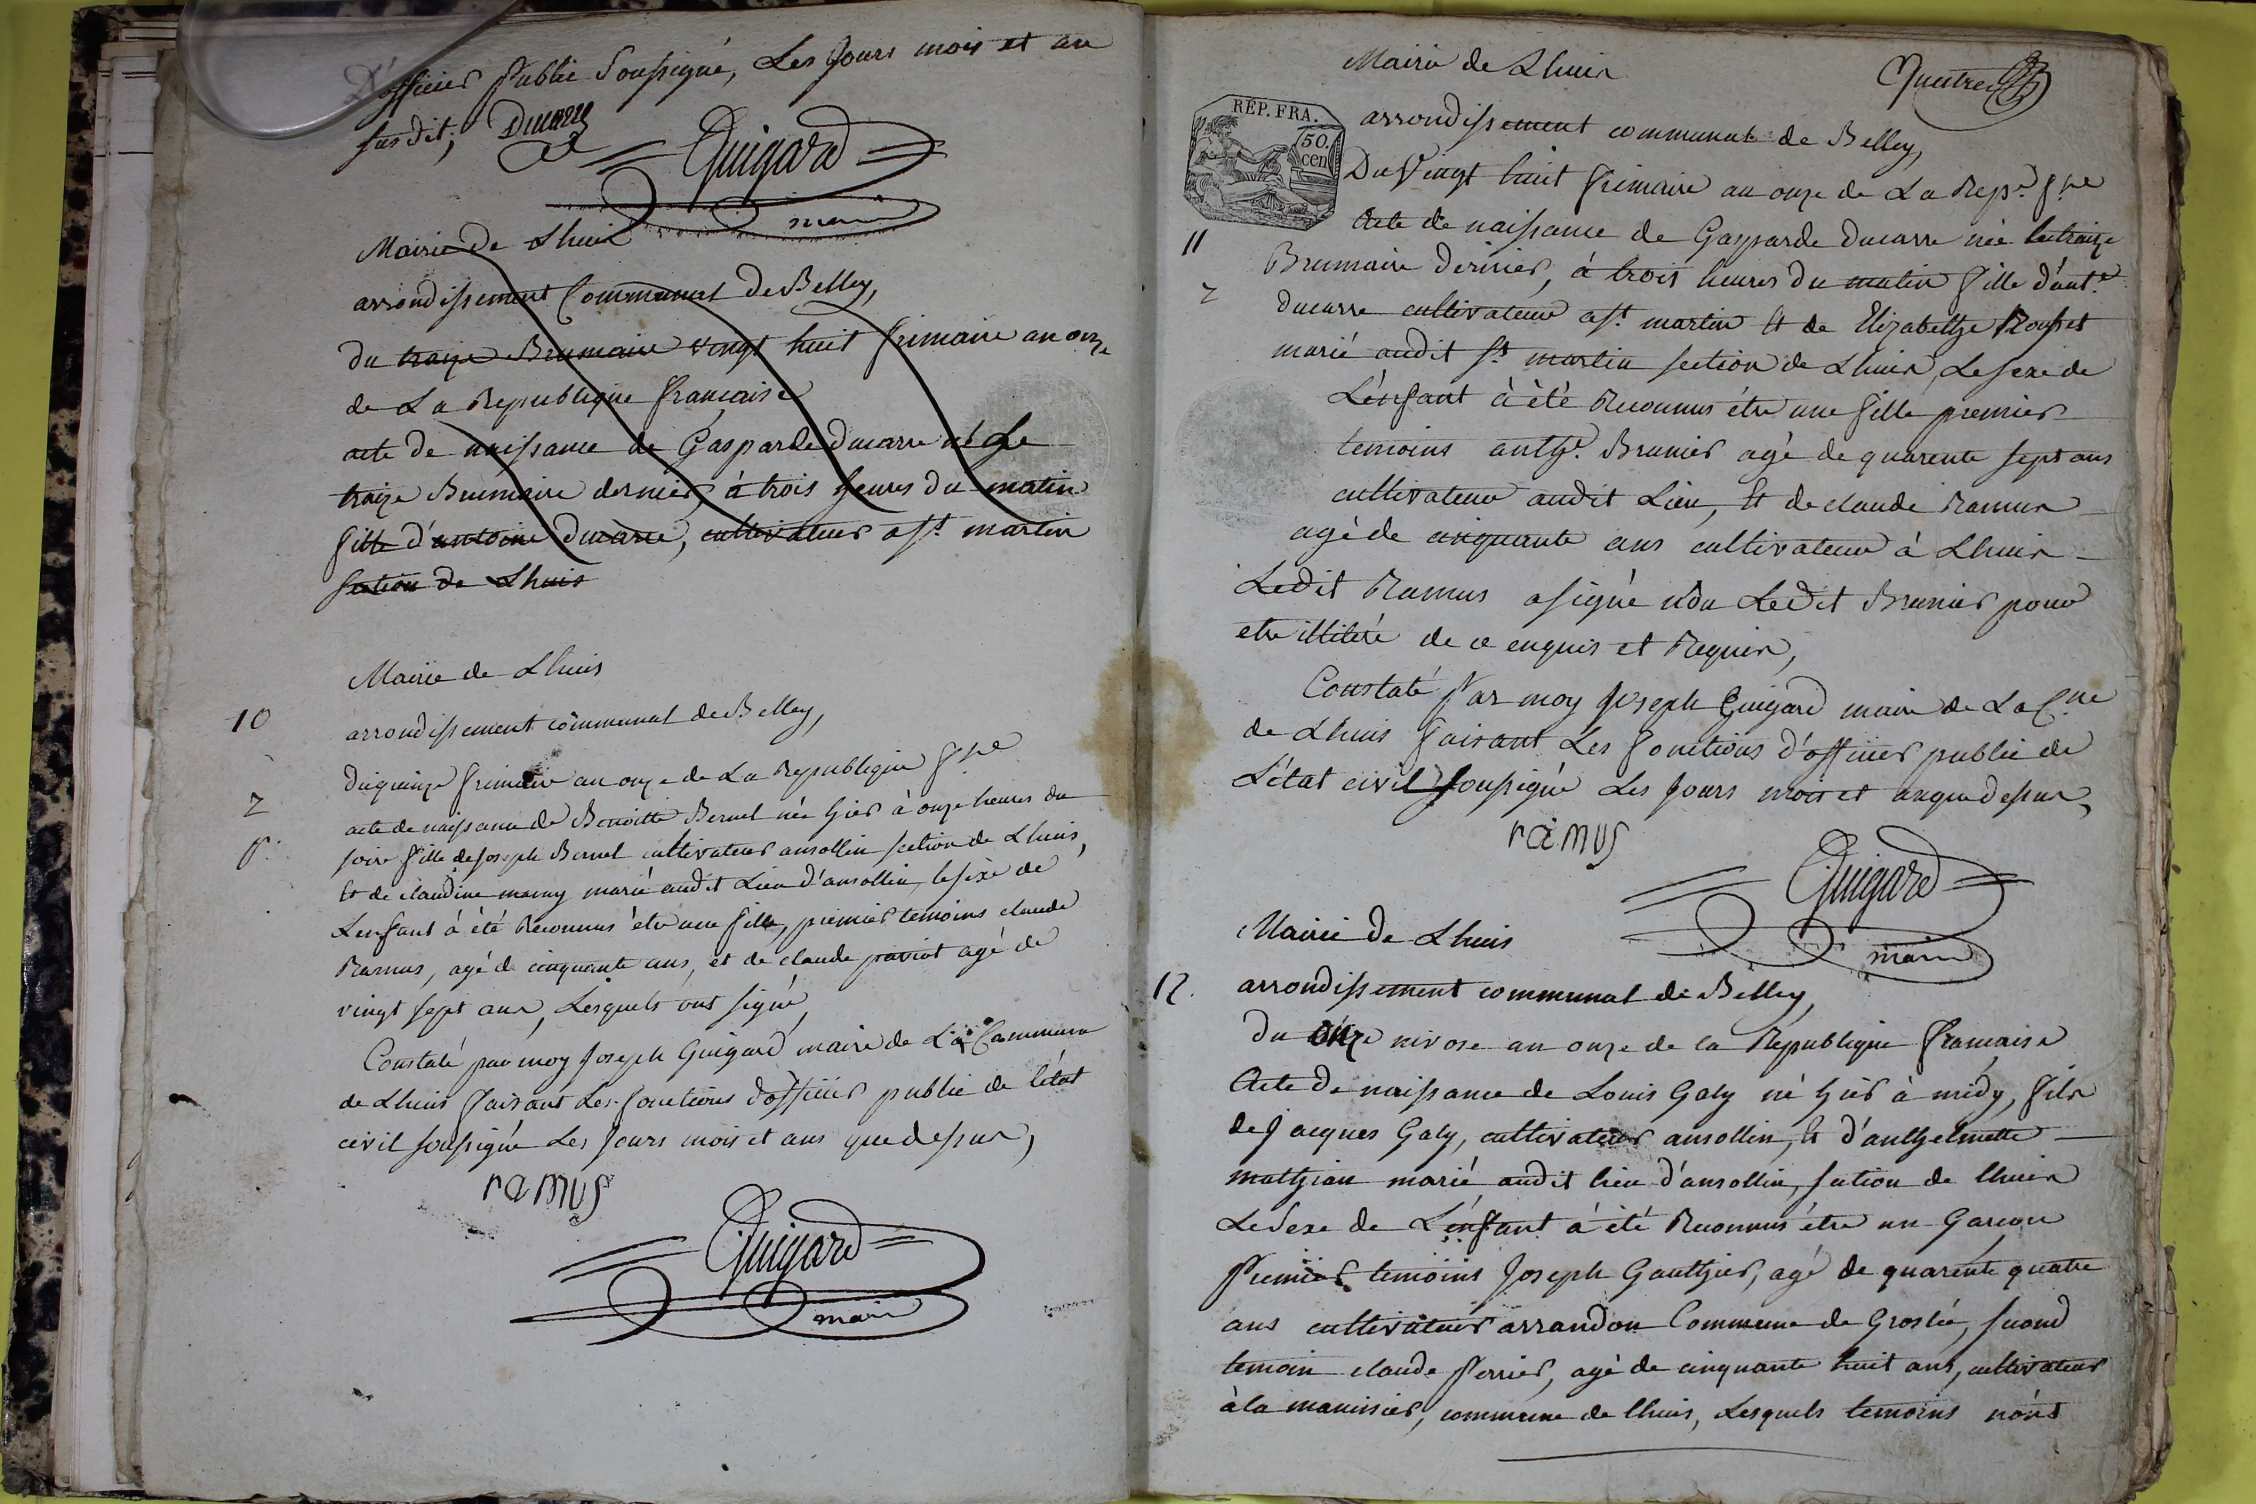 D'officier Public Soussigné, Les Jours mois et an
susdit; Ducarre
Guigard
maire
Mairie De Lhuis
arrondissement Communal De Belley,
du traize Brumaire vingt huit frimaire an onze
de La Republique française
acte de naissance de Gasparde Ducarre né Le
traize Brumaire dernier, à trois heures du matin
fille d'antoine Ducarre, cultivateur a St. martin
section de Lhuis
Mairie de Lhuis
10
arrondissement communal de Belley,
Du quinze frimaire an onze de La Republique fse
2
acte de naissance de Benoitte Bernel née hier à onze heures du
soire fille de Joseph Bernel cultivateur ansollin section de Lhuis,
Et de claudine marié audit Lieu d'ansollin, le sexe de
L'enfant à été Reconnus être une fille, premier temoins claude
Ramus, agé de cinquante ans, et de claude agé de
vingt sept ans, Lesquels ont signé
Constaté par moy Joseph Guigard maire de La Commune
de Lhuis faisant Les fonctions d'officier public de l'état
civil soussigné Les Jours mois et ans que dessus,
ramus
Guigard
maire
Mairie de Lhuis
REP. FRA.
50.
cen
arrondissement communal de Belley,
Du Vingt huit frimaire an onze de La Rep.e fse
Acte de naissance de Gasparde Ducarre née le traize
11
Brumaire dernier, à trois heures du matin fille d'ant.e
2
ducarre cultivateur a St. martin Et de Elizabethe Rousset
marié audit St. martin section de Lhuis, Le sexe de
L'enfant à été Reconnus être une fille premier
temoins anth.e Brunier agé de quarente sept ans
cultivateur audit Lieu, Et de claude Ramus
agé de cinquante ans cultivateur à Lhuis
Ledit Ramus a signé non Ledit Brunier pour
etre illiteré de ce enquis et Requis,
Constaté Par moy Joseph Guigard maire de La Cne
de Lhuis faisant Les fonctions d'officier public de
L'état civil soussigné Les Jours mois et an que dessus,
ramus
Guigard
maire
Mairie de Lhuis
12.
arrondissement communal de Belley,
du onze nivose an onze de la Republique française
Acte De naissance de Louis Galy né hier à midy, fils
de Jacques Galy, cultivateur ansollin, Et d'anthelmette
mathian marié audit lieu d'ansollin, section de lhuis
Le Sexe de L'enfant à été Reconnus être un Garçon
Premier temoins Joseph Gauthier, agé de quarente quatre
ans cultivateur arrandon Commune de Groslée, second
temoin claude Perrier, agé de cinquante huit ans, cultivateur
à la, commune de lhuis, Lesquels temoins n'ont